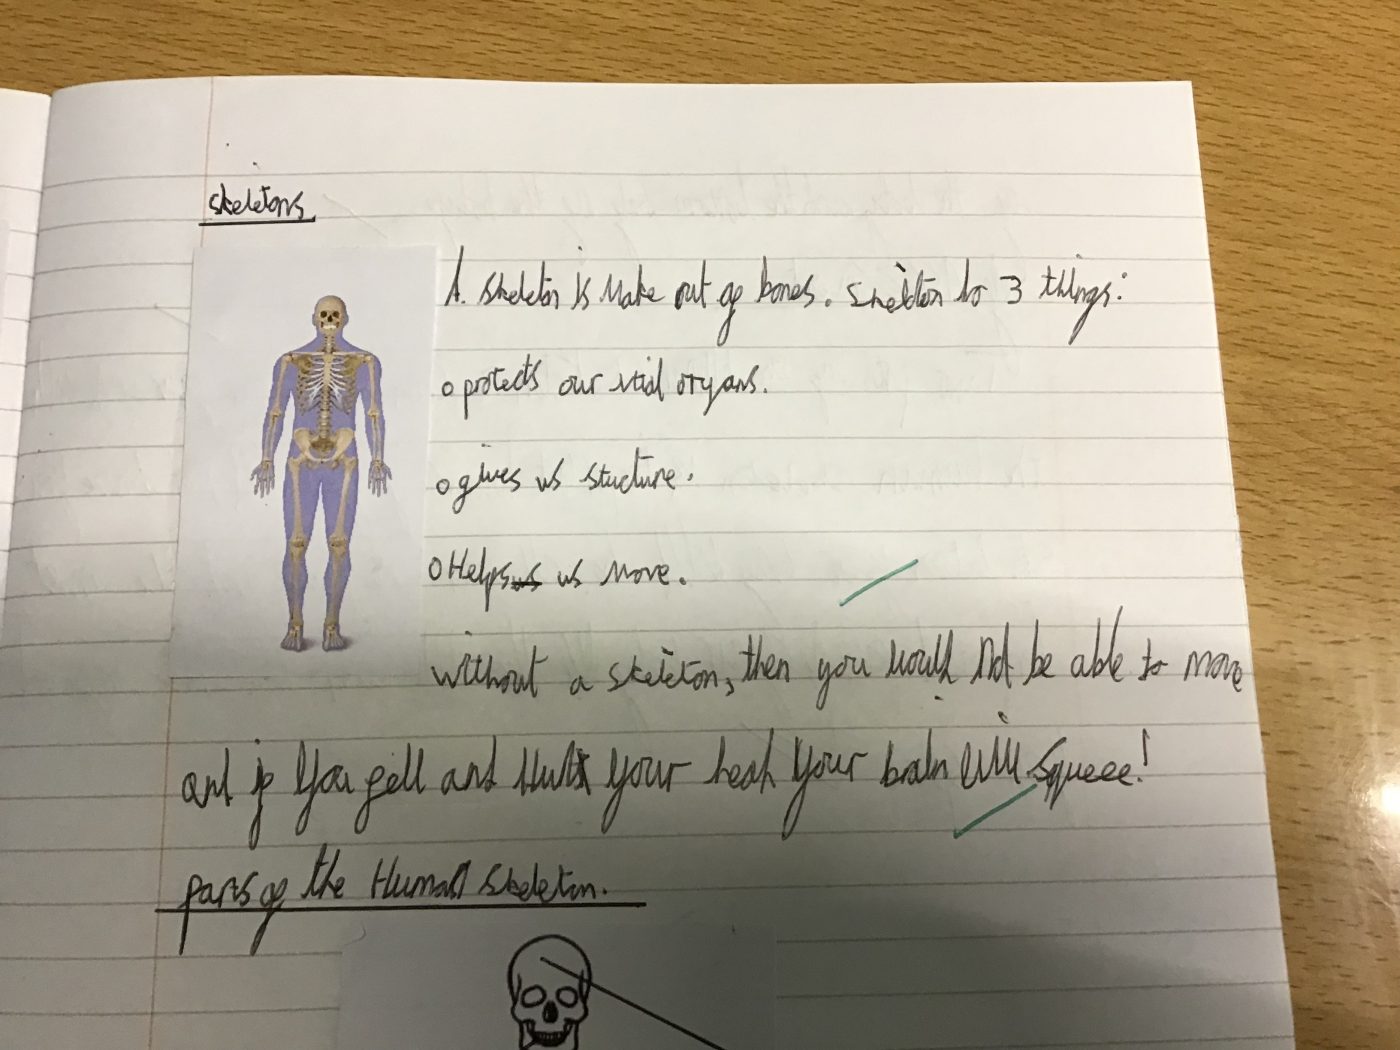 skeletons
A. skeleton is Make out of bones. skeleton do 3 things:
o protects our vital organs.
o gives us stucture.
o Helps us us Move.
without a skeleton, then you would Not be able to move
and if You fell and Hurt Your head Your brain will squeee!
parts of the Human skeleton.